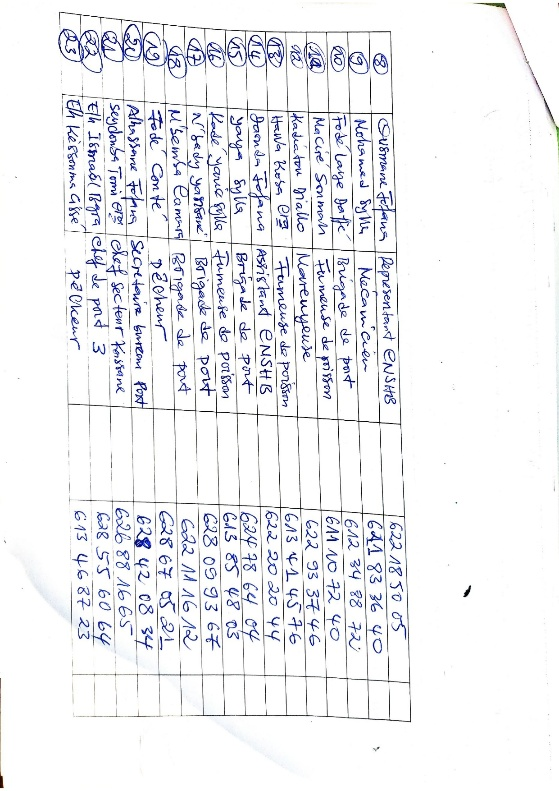 8 Ousmane Fofana Représentant ENSHB 622 18 50 05
9 Mohamed Sylla Mécanicien 621 83 36 40
10 Fodé Laye Daffé Brigade de port 612 34 88 72
11 Maciré Soumah Fumeuse de poisson 611 10 72 40
12 Kadiatou Diallo Mareyeuse 622 93 37 46
13 Hawa Keba Fumeuse de poisson 613 41 45 76
14 Daouda Fofana Assistant CNSHB 622 20 20 44
15 Yaya Sylla Brigade de port 624 78 64 04
16 Kadé Yarie Sylla Fumeuse de poisson 613 85 48 03
17 N'Gady Brigade de port 628 09 93 67
18 M'Bemba Camara Brigade de port 622 11 16 12
19 Fodé Conté pêcheur 628 67 05 21
20 Alhassane Fofana Secretaire bureau Port 628 42 08 34
21 Seydouba Chef secteur 626 88 16 65
22 Elh Ismaël Chef de port 3 628 55 60 64
23 Elh Cissé pêcheur 613 46 87 23